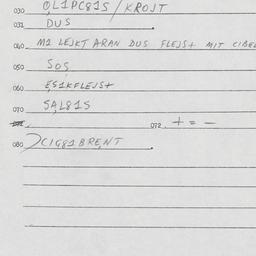 030 QL1PC81S / KROJT
031 DUS
040 M1 LEJKT ARAN DUS FLEJS+ MIT CIBEL
050 SOS
060 ES1KFLEJS+
070 SAL81S
072 + = -
080 CIG81BRENT